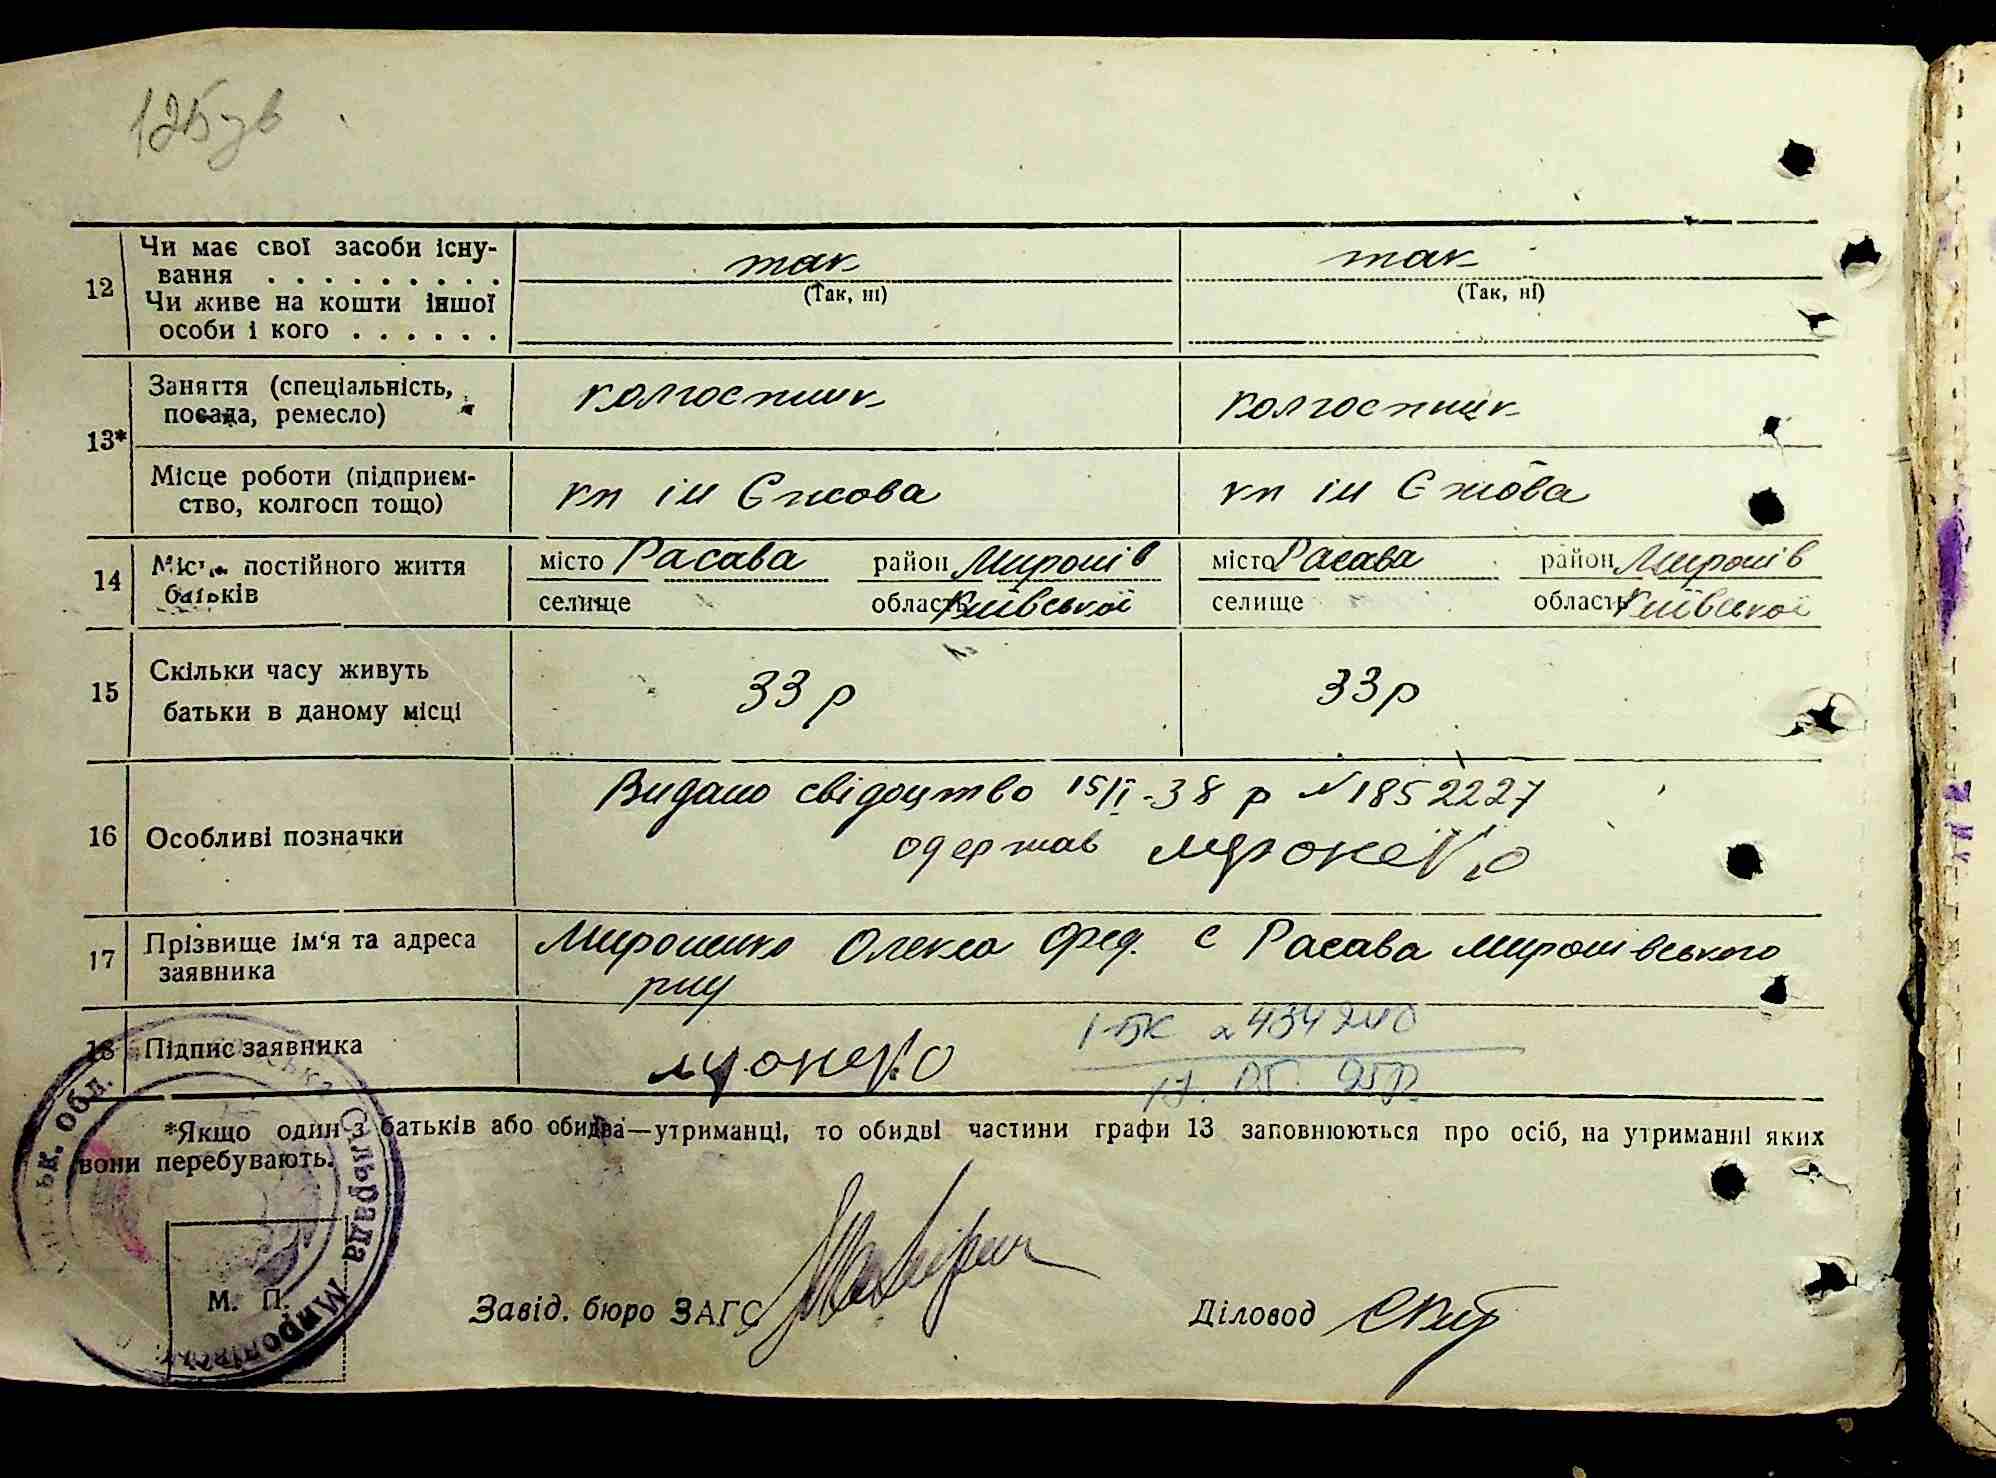 12 Чи має свої засоби існу-
вання . . . . . . . . . так так
(Так, ні) (Так, ні)
Чи живе на кошти іншої
особи і кого . . . . . .
13* Заняття (спеціальність, колгоспник колгоспник
посада, ремесло)
Місце роботи (підприєм- кп ім Єжова кп ім Єжова
ство, колгосп тощо)
14 постійного життя місто Расава район Миронів місто Расава район Миронів
батьків селище область Київської селище область Київської
15 Скільки часу живуть 33 р 33 р
батьки в даному місці
16 Особливі позначки Видано свідоцтво 15/II-38 р N 1852227
одержав
17 Прізвище ім'я та адреса Мироненко Олекса Фед. с Расава Миронівського
заявника рну
18 Підпис заявника
17. 05. 95р.
*Якщо один з батьків або обидва—утриманці, то обидві частини графи 13 заповнюються про осіб, на утриманні яких
вони перебувають.
Сільрада
обл.
М. П.
Завід. бюро ЗАГС
Діловод